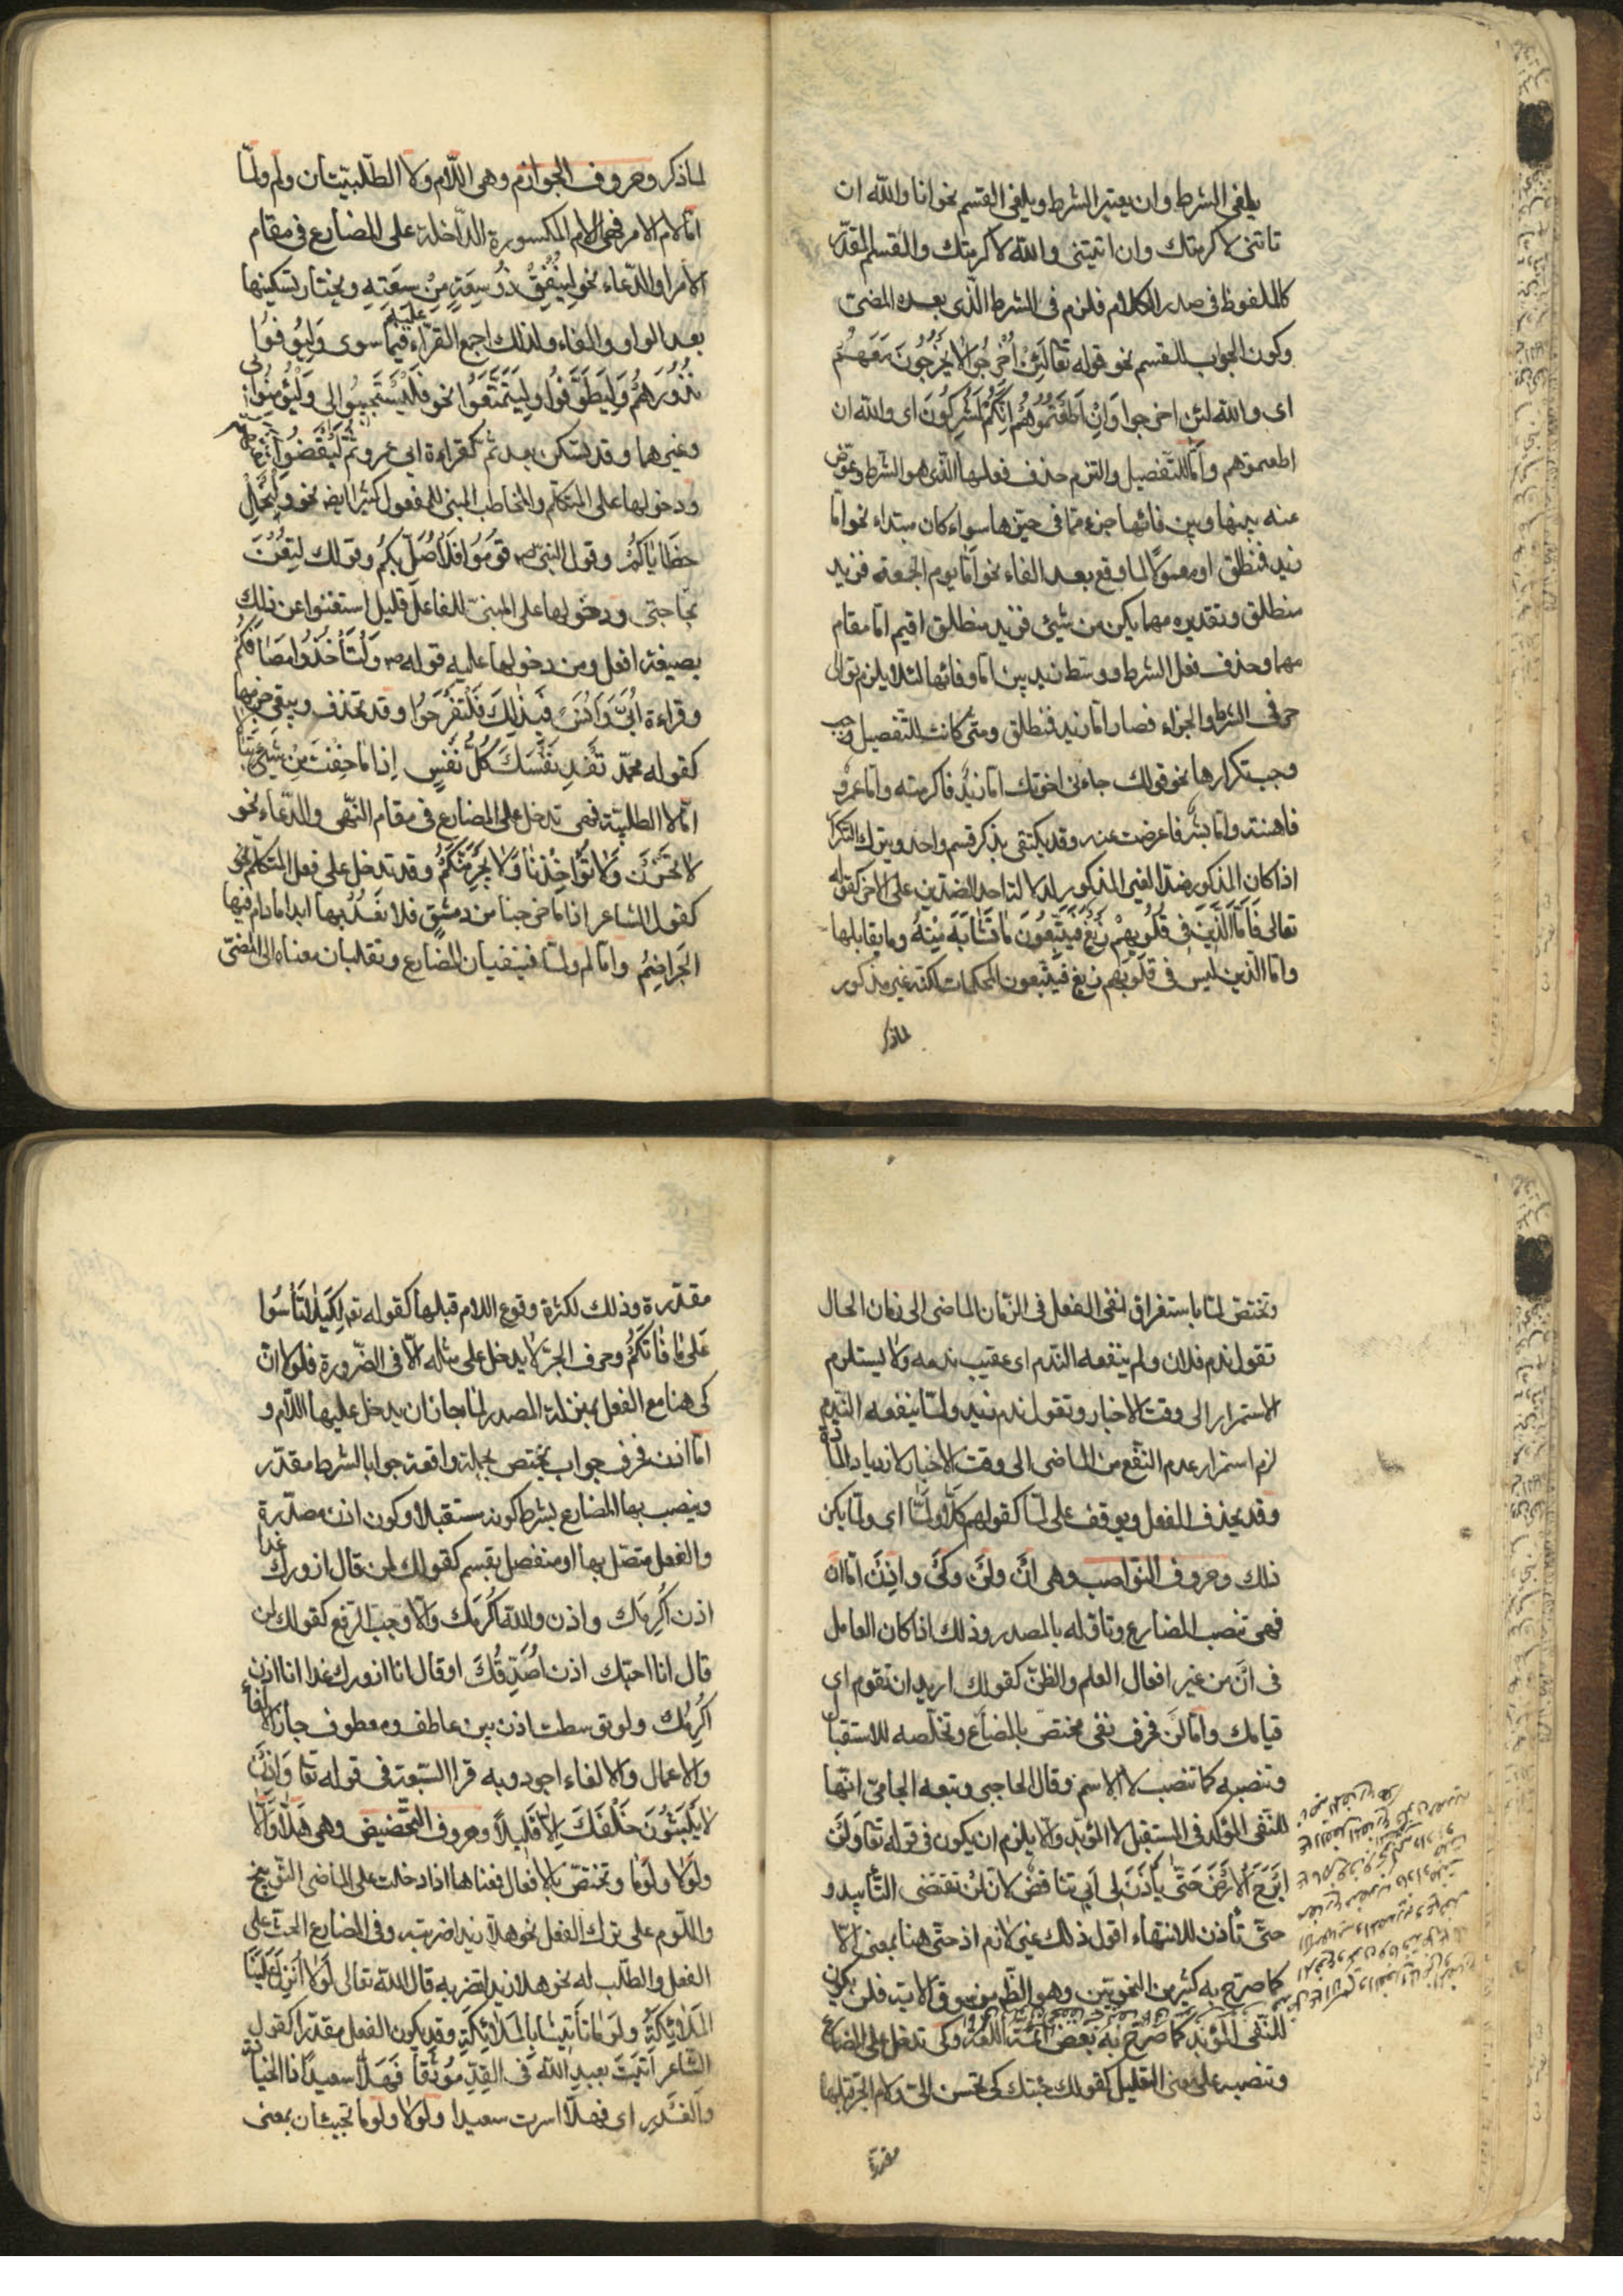 يلغى الشرط وان يعتبر الشرط ويلغى القسم نحو انا والله ان
تاتنى لاكرمتك وان اتيتنى والله لاكرمتك والقسم المقدّر
كالملفوظ فى صدر الكلام فلزم فى الشرط الّذى بعده المضى
وكون الجواب للقسم نحو قوله تعا لَئِنْ اُخْرِجُوا لا يَخْرُجُونَ مَعَهُمْ
اى والله لئن اخرجوا وَاِنْ اَطَعْتُمُوهُمْ اِنَّكُمْ لَمُشْرِكُونَ اى والله ان
اطعتموهم وامّا للتّفصيل والتزم حذف فعلها الّذى هو الشرط وعوّض
عنه بينها وبين فائها جزء ممّا فى حيّزها سواء كان مبتداء نحو امّا
زيد فمنطلق او معمولًا لما وقع بعد الفاء نحو امّا يوم الجمعة فزيد
منطلق وتقديره مهما يكن من شيئ فزيد منطلق اقيم امّا مقام
مهما وحذف فعل الشرط ووسّط زيد بين امّا وفائها لئلا يلزم توالى
حرفى الشرط والجزاء فصار امّا زيد فمنطلق ومتى كانت للتّفصيل
وجب تكرارها نحو قولك جاءنى اخوتك امّا زيد فاكرمته وامّا عمرو
فاهنته وامّا بشر فاعرضت عنه وقد يكتفى بذكر قسم واحد ويترك التكرار
اذا كان المذكور ضدّا لغير المذكور لدلالة احد الضدّين على الاخر كقوله
تعالى فَاَمَّا الَّذِينَ فى قُلُوبِهِمْ زَيْغٌ فَيَتَّبِعُونَ مَا تَشَابَهَ مِنْهُ وما يقابلها
وامّا الذين ليس فى قلوبهم زيغ فيتّبعون المحكمات لكنّه غير مذكور
لماذكر
لماذكر وحروف الجوازم وهى اللّام ولا الطّلبيّتان ولم ولمّا
امّا لام الامر فهى اللام المكسورة الدّاخلة على المضارع فى مقام
الامر او الدّعاء نحو لِيُنْفِقْ ذُو سَعَةٍ مِنْ سَعَتِهِ ويختار تسكينها
بعد الواو والفاء ولذلك اجمع القرّاء عليه فيما سوى وَلْيُوفُوا
نُذُورَهُمْ وَلْيَطَّوَّفُوا وَلِيَتَمَتَّعُوا نحو فَلْيَسْتَجِيبُوا لى وَلْيُؤْمِنُوا بى
وغيرهما وقد تسكن بعد ثمّ كقراءة ابى عمرو ثُمَّ لْيَقْضُوا
ودخولها على المتكلّم والمخاطب المبنى للمفعول كثير ايضا نحو وَلْنَحْمِلْ
خَطَايَاكُمْ وقول النبىّ ص قُومُوا فَلِاُصَلِّ بِكُمْ وقولك لِتُعْنَ
بحاجتى ودخولها على المبنىّ للفاعل قليل استغنوا عن ذلك
بصيغة افعل ومن دخولها عليه قوله ص وَلْتَأْخُذُوا مَصَافَّكُمْ
وقراءة اُبَىٍّ وَاَنَسٍ فَبِذَلِكَ فَلْتَفْرَحُوا وقد تحذف ويبقى جزمها
كقوله محمّد تَفْدِ نَفْسَكَ كُلُّ نَفْسٍ اِذَا مَا خِفْتَ مِنْ شَيْئٍ تَبَالاً
امّا لا الطلبيّة فهى تدخل على المضارع فى مقام النّهى والدّعاء نحو
لَا تَحْزَنْ وَلَا تُؤَاخِذْنَا وَلَا يَجْرِمَنَّكُمْ وقد تدخل على فعل المتكلّم نحو
كقول الشاعر اذا ما خرجنا من دمشق فلا نَعُدْ بها ابدا مادام فيها
الجَرَاضِمُ وامّا لم ولمّا فينفيان المضارع وتقلبان معناه الى المضىّ
وتختصّ لمّا باستغراق نفى الفعل فى الزّمان الماضى الى زمان الحال
تقول ندم فلان ولم ينفعه النّدم اى عقيب ندمه ولا يستلزم
الاستمرار الى وقت الاخبار وتقول ندم زيد ولمّا ينفعه النّدم
لزم استمرار عدم النّفع من الماضى الى وقت الاخبار لازدياد المادّة
وقد يحذف الفعل ويوقف على لمّا كقولهم كَلَّا وَلَمَّا اى ولمّا يكن
ذلك وحروف النّواصب وهى اَنْ ولَنْ وكَىْ واِذَنْ امّا ان
فهى تنصب المضارع وتاوّله بالمصدر وذلك اذا كان العامل
فى اَنْ من غير افعال العلم والظنّ كقولك اريد ان تقوم اى
قيامك وامّا لَنْ فحرف نفى مختصّ بالمضارع وتخلّصه للاستقبال
وتنصبه كما تنصب لا الاسم وقال الحاجبى وتبعه الجامىّ انّها
للنّفى المؤكّد فى المستقبل لا المؤبّد والّا يلزم ان يكون فى قوله تعا وَلَنْ
اَبْرَحَ الْاَرْضَ حَتَّى يَأْذَنَ لِى اَبِى تناقض لانّ لن تقتضى التّأبيد و
حتّى تأذن للانتهاء اقول ذلك غير لازم اذ حتّى هنا بمعنى الّا
كما صرّح به كثير من النّحويّين وهو الظّ من سوق الاية فلن يكون
للنّفى المؤبّد كما صرّح به بعض ائمّة اللّغة وكى تدخل على المضارع
وتنصبه على معنى التعليل كقولك جئتك كى تحسن الىّ ولام الجرّ قبلها
مقدرة
مقدّرة وذلك لكثرة وقوع اللام قبلها كقوله تع لِكَيْلَا تَأْسَوْا
عَلَى مَا فَاتَكُمْ وحرف الجرّ لا يدخل على مثله الّا فى الضّرورة فلولا انّ
كى هنا مع الفعل بمنزلة المصدر لما جاز ان يدخل عليها اللّام و
امّا اذن فحرف جواب يختصّ بجملة واقعة جوابا لشرط مقدّر
وينصب بها المضارع بشرط كونه مستقبلا وكون اذن مصدّرة
والفعل متصّل بها او منفصل بقسم كقولك لمن قال ازورك غدا
اذن اُكْرِمَكَ واذن والله اكرمَك والّا وجب الرّفع كقولك لمن
قال انا احبّك اذن اُصَدِّقُكَ او قال انا ازورك غدا انا اذن
اُكْرِمُكَ ولو توسطت اذن بين عاطف ومعطوف جاز الالغاء
والاعمال والالغاء اجود وبه قرا السّبعة فى قوله تعا وَاِذَنْ
لَا يَلْبَثُونَ خَلْفَكَ اِلَّا قَلِيلًا وحروف التّحضيض وهى هَلَّا وَاَلَّا
ولَوْلَا ولَوْمَا وتختصّ بالافعال فمعناها اذا دخلت على الماضى التّوبيخ
واللّوم على ترك الفعل نحو هلّا زيدا ضربته وفى المضارع الحثّ على
الفعل والطّلب له نحو هلا زيدا تضربه قال الله تعالى لَوْلَا اُنْزِلَ عَلَيْنَا
الْمَلَائِكَةُ ولَوْمَا تَأْتِينَا بِالْمَلَائِكَةِ وقد يكون الفعل مقدّرا كقول
الشّاعر اَتَيْتَ بعبدِ اللهِ فى القِدِّ مُوثَقًا فَهَلَّا سعيدًا ذا الخيانة
والغَدْرِ اى فهلّا اسرت سعيدا ولولا ولوما تجيئان بمعنى